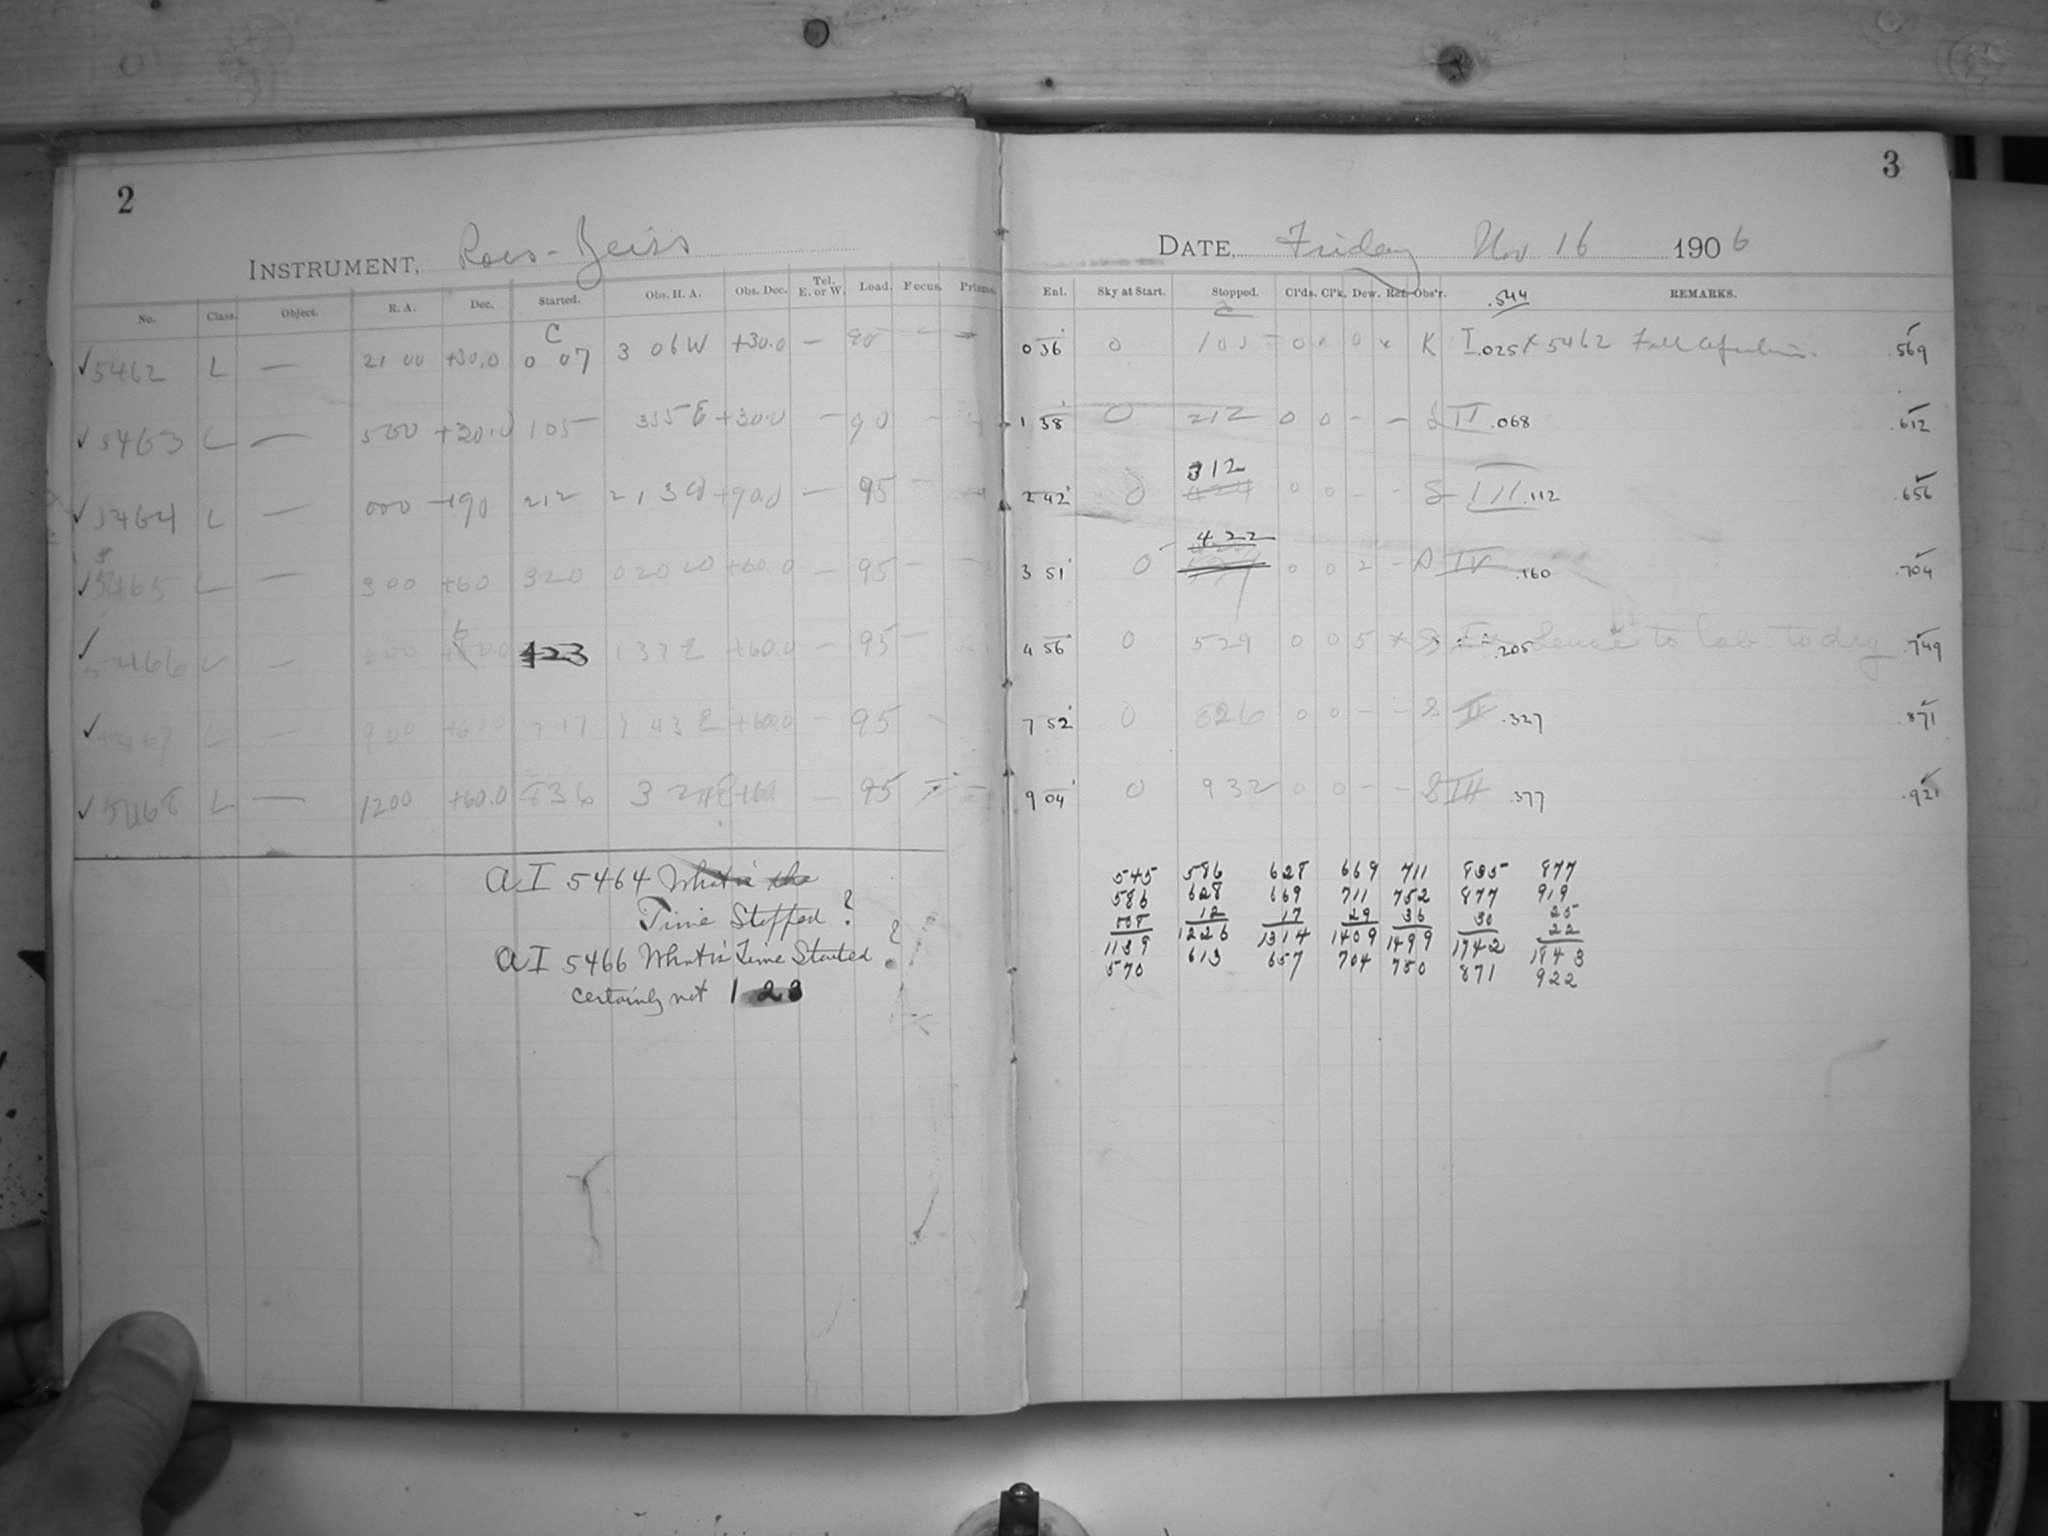 2
INSTRUMENT, Ross-Zeiss
No. Class. Object. R. A. Dec. Started. Obs. H. A. Obs. Dec. Tel. E. or W. Load. Focus. Prisms.
C
✓5462 L — 21 00 +30.0 0 07 3 06W +30.0 — 90 — —
✓5463 L — 500 +30.0 105 355E +30.0 — 90 —
✓5464 L — 000 +90 212 213W +90.0 — 95 —
✓5465 L — 300 +60 320 020W +60.0 — 95 —
✓5466 L — 600 423 137E +60.0 — 95 —
✓5467 L — 900 +60.0 717 143E +60.0 — 95 —
✓5468 L — 1200 +60.0 836 324E +60 — 95 — —
AI 5464 What is the
Time Stopped ?
AI 5466 What is Time Started ?
certainly not 1 23
3
DATE, Friday Nov 16 1906
Ent. Sky at Start. Stopped. Cl'ds. Cl'k. Dew. Ref. Obs'r. .544 REMARKS.
0 36 0 105 0 0 K I .025 x 5462 .569
1 38 0 212 0 0 - - S II .068 .612
312
2 42 0 0 0 - - S III .112 .656
422
3 51 0 0 0 2 - S IV .160 .704
4 56 0 529 0 0 5 x S .205 to lab to dry .749
7 52 0 826 0 0 - - S II .327 .871
9 04 0 932 0 0 - - S III .377 .921
545 586 628 669 711 835 877
586 628 669 711 752 877 919
008 12 17 29 36 30 25
22
1139 1226 1314 1409 1499 1742 1843
570 613 657 704 750 871 922